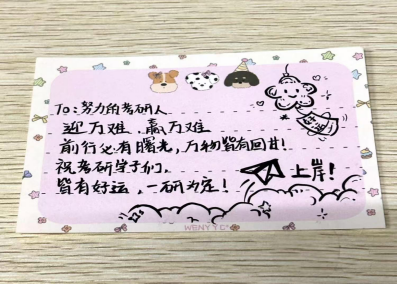 To:努力的考研人
迎万难、赢万难
前行必有曙光,万物皆有回甘!
祝考研学子们,
皆有好运,一研为定!
上岸!